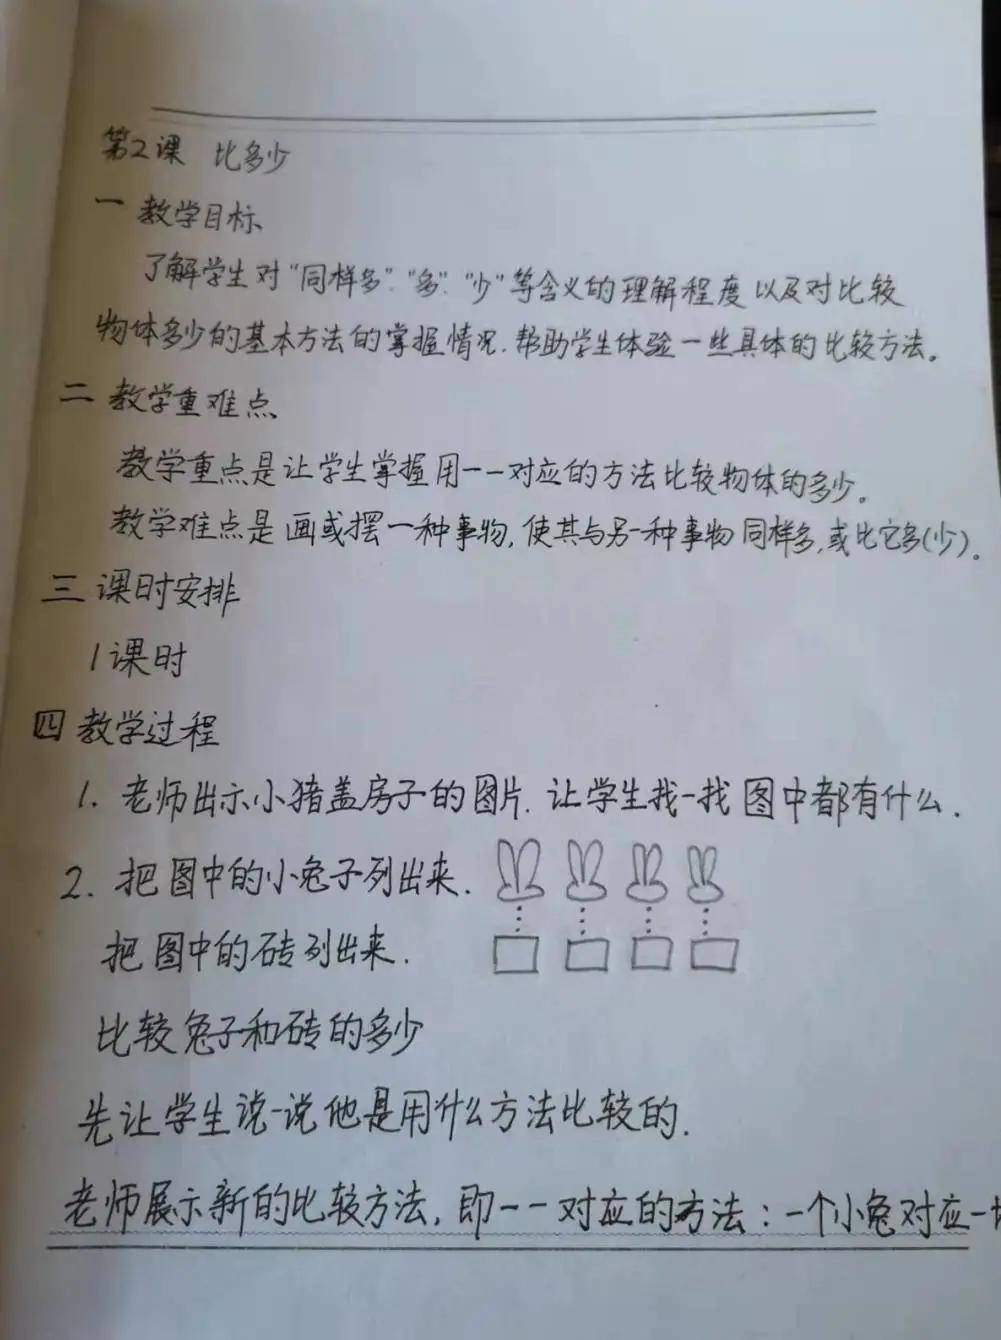 第2课 比多少
一 教学目标
了解学生对“同样多”.“多”.“少”等含义的理解程度以及对比较
物体多少的基本方法的掌握情况.帮助学生体验一些具体的比较方法。
二 教学重难点
教学重点是让学生掌握用一一对应的方法比较物体的多少。
教学难点是画或摆一种事物,使其与另一种事物同样多,或比它多(少)。
三 课时安排
1课时
四 教学过程
1. 老师出示小猪盖房子的图片.让学生找一找图中都有什么.
2. 把图中的小兔子列出来.
把图中的砖列出来.
比较兔子和砖的多少
先让学生说一说他是用什么方法比较的.
老师展示新的比较方法,即一一对应的方法:一个小兔对应一